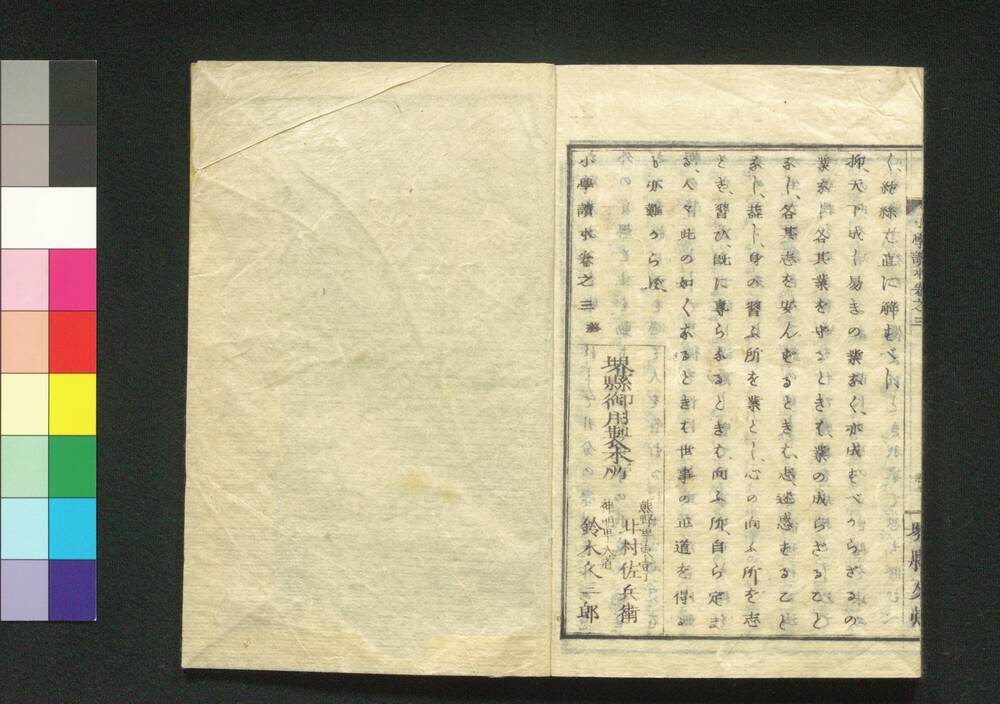 く、紛絲も直に解すべし
抑天下成し易きの業なく、亦成すべからざるの
業なし、各其業を守るときは、業の成らざること
なし、各其志を安んずるときは、志、迷惑すること
なし、蓋し、身の習ふ所を業とし、心の向ふ所を志
とき、習ひ、既に專らなるときは、向ふ所、自ら定ま
る、人々此の如くなるときは、世事の正道を得る
も亦難からず、
小學讀本卷之三 終
堺縣御用製本所
熊野町
村佐兵衞
神明町大道
鈴木久三郎
小學讀本卷之三
堺縣